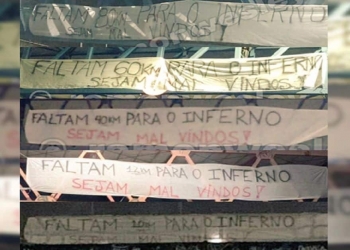 FALTAM 80KM PARA O INFERNO
FALTAM 60KM PARA O INFERNO
SEJAM MAL VINDOS!
FALTAM 40KM PARA O INFERNO
SEJAM MAL VINDOS!
FALTAM KM PARA O INFERNO
SEJAM MAL VINDOS!
FALTAM 10KM PARA O INFERNO
SEJAM MAL VINDOS!